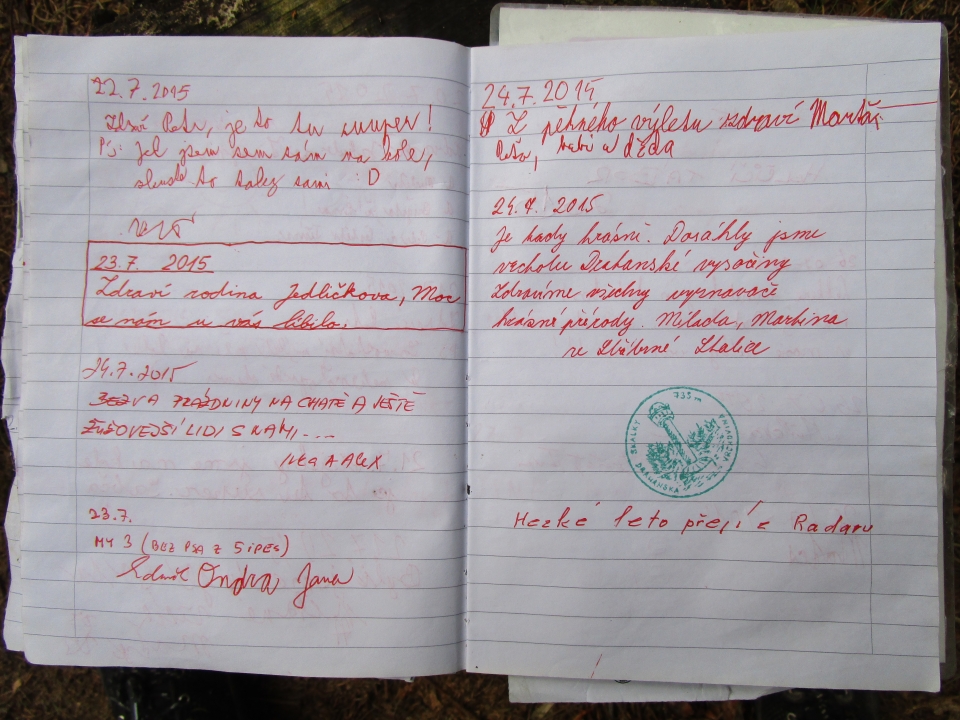 22.7.2015
Zdraví Petr, je to tu suuper!
P.S: Jel jsem sem sám na kole,
to taky sami :D
23.7. 2015
Zdraví rodina Jedličkova, Moc
se nám u vás líbilo.
24.7.2015
BEZVA PRÁZDNINY NA CHATĚ A JEŠTĚ
LIDI S NÁMI...
A ALEX
23.7.
MY 3 (BEZ PSA Z 5 IPES)
Zdeněk Ondra Jana
24.7.2015
Z pěkného výletu zdraví
babi a děda
24.7. 2015
Je tady krásně. Dosáhly jsme
vrcholu Drahanské vysočiny
Zdravíme všechny vyznavače
krásné přírody. Milada, Martina
ze Stříbrné Skalice
735 m
SKALKY
DRAHANSKÁ
Hezké leto přejí z Radaru